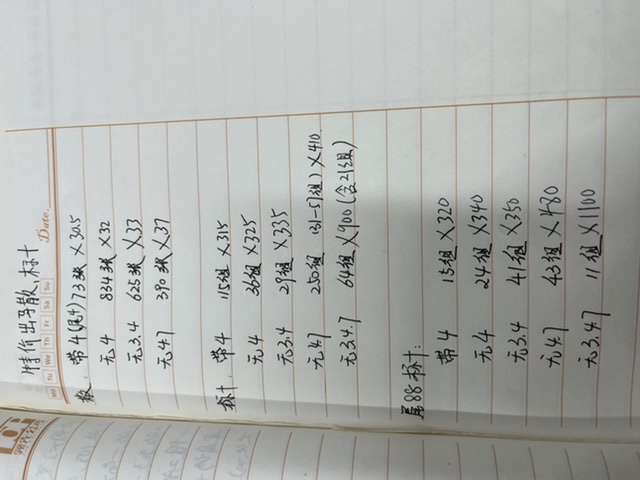 特价出马散,标十
Date.
Mo Tu We Th Fr Sa Su
散: 带4(尾4) 73张×30.5
无4 834张×32
无3.4 625张×33
无4.7 390张×37
标十: 带4 115组×315
无4 36组×325
无3.4 29组×335
无4.7 250组 (31-57组)×410
无3.4.7 64组×900(含21组)
尾88标十:
带4 15组×320
无4 24组×340
无3.4 41组×350
无4.7 43组×480
无3.4.7 11组×1100